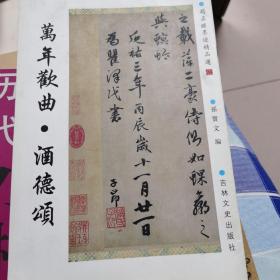 趙孟頫墨迹精品選
孫寶文 編
吉林文史出版社
之載萍二豪侍側如蜾蠃之
與螟蛉
延祐三年丙辰歲十一月廿一日
為瞿澤民書
子昂
萬年歡曲·酒德頌
历代